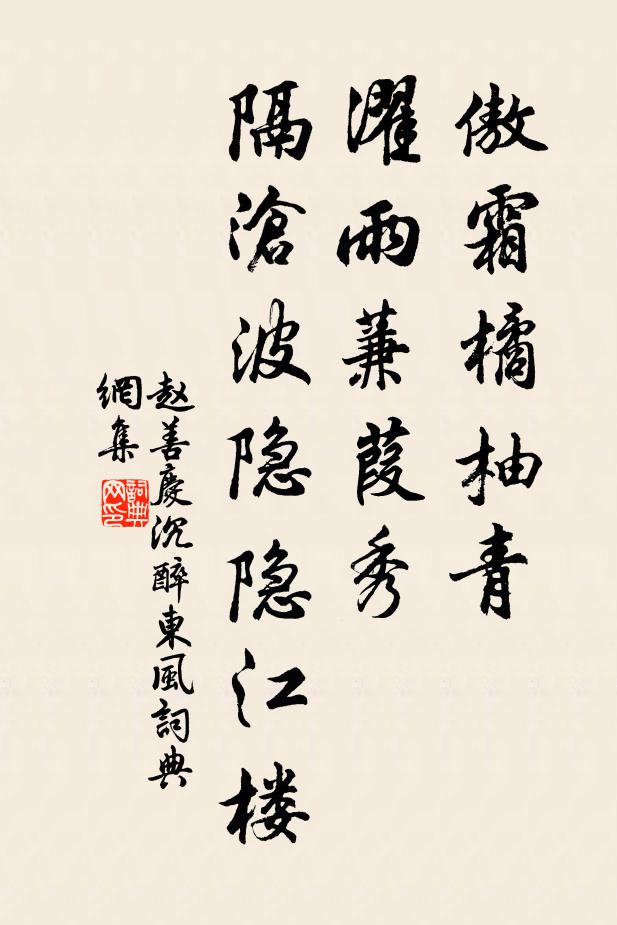 傲霜橘柚青
濯雨蒹葭秀
隔滄波隐隐江楼
赵善慶沉醉東風詞典
網集
詞典
网印